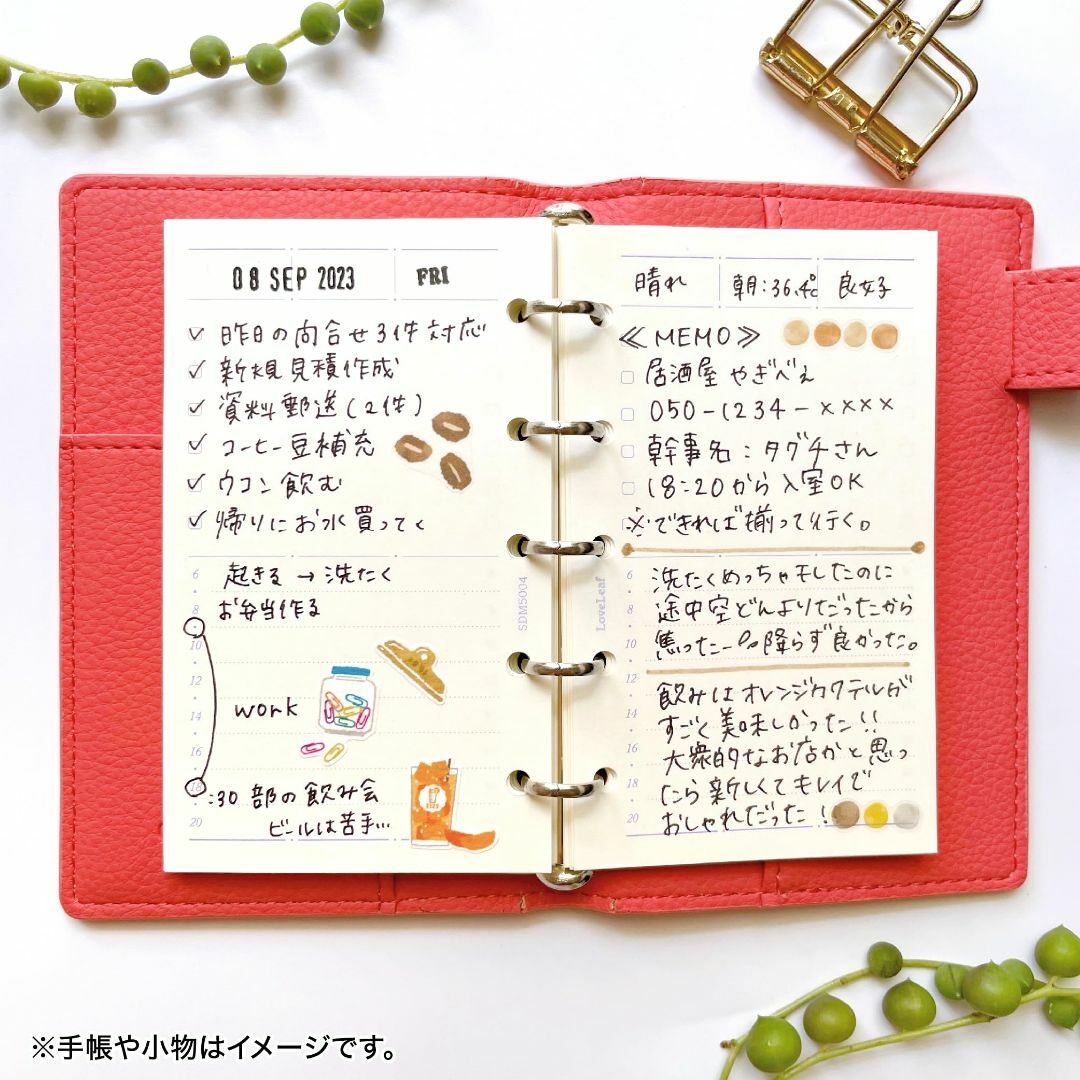 08 SEP 2023 FRI
✓ 昨日の問合せ3件対応
✓ 新規見積作成
✓ 資料郵送(2件)
✓ コーヒー豆補充
✓ ウコン飲む
✓ 帰りにお水買ってく
6 起きる → 洗たく
8 お弁当作る
10
12
14 work
16
18 :30 部の飲み会
20 ビールは苦手…
SDM5004
晴れ 朝:36.4℃ 良好
≪MEMO≫
居酒屋 やぎべぇ
050-1234-××××
幹事名:タグチさん
18:20から入室OK
※できれば揃って行く。
6 洗たくめっちゃ干したのに
8 途中空どんよりだったから
10 焦ったー 降らず良かった。
12 飲みはオレンジカクテルが
14 すごく美味しかった!!
16 大衆的なお店かと思っ
18 たら新しくてキレイで
20 おしゃれだった!
LoveLeaf
※手帳や小物はイメージです。